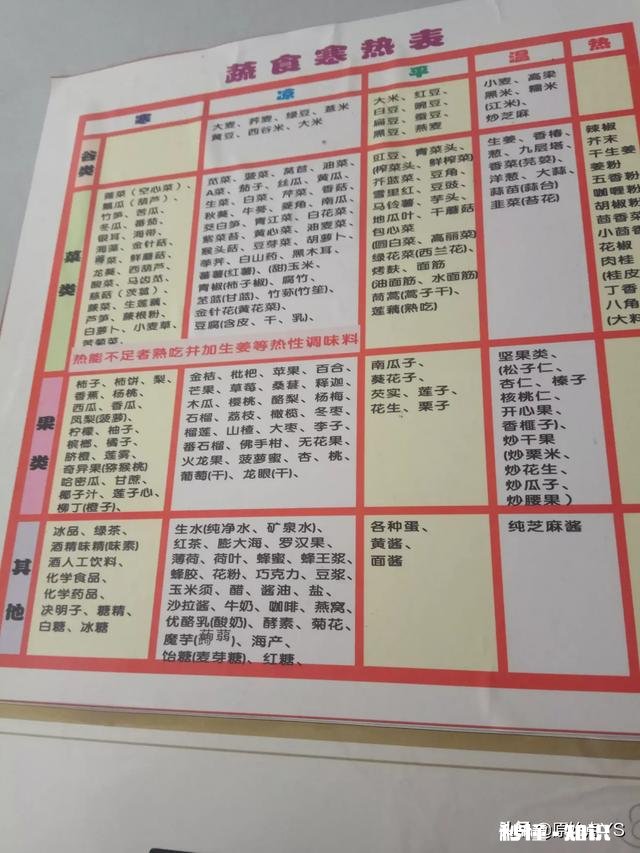 蔬食寒热表
寒
凉
平
温
热
谷类
大麦、荞麦、绿豆、薏米
黄豆、西谷米、大米
大米、红豆、
白豆、豌豆、
扁豆、蚕豆、
黑豆、燕麦
小麦、高梁
黑米、糯米
(江米)、
炒芝麻
菜类
蕹菜（空心菜）、
瓠瓜（葫芦）、
竹笋、苦瓜、
冬瓜、番茄、
银耳、海带、
海藻、金针菇、
莼菜、鲜蘑菇、
龙葵、西葫芦、
酸菜、马齿苋、
慈菇（茨菰）、
蕨菜、生莲藕、
芦笋、蕨根粉、
白萝卜、小麦草、
苋菜、菠菜、莴苣、油菜、
A菜、茄子、丝瓜、黄瓜、
生菜、白菜、芹菜、香菇、
秋葵、牛蒡、菱角、南瓜、
茭白笋、青江菜、白花菜、
紫菜苔、黄心菜、油麦菜、
猴头菇、豆芽菜、胡萝卜、
荸荠、白山药、黑木耳、
蕃薯(红薯)、(甜)玉米、
青椒(柿子椒)、腐竹、
芝蓝(甘蓝)、竹荪(竹笙)、
金针花(黄花菜)、
豆腐(含皮、干、乳)、
豇豆、青菜头、
(榨菜头、鲜榨菜)
芥蓝菜、豆角、
雪里红、豆豉、
马铃薯、芋头、
地瓜叶、干蘑菇
包心菜
(圆白菜、高丽菜)
绿花菜(西兰花)、
烤麸、面筋
(油面筋、水面筋)
茼蒿(蒿子干)、
莲藕(熟吃)
生姜、香椿、
葱、九层塔、
香菜(芫荽)、
洋葱、大蒜、
蒜苗(蒜台)
韭菜(苔花)
辣椒
芥末
干生姜
姜粉
五香粉
咖喱粉
胡椒粉
茴香菜
小茴香
花椒
肉桂
(桂皮
丁香
八角
(大料
热能不足者熟吃并加生姜等热性调味料
果类
柿子、柿饼、梨、
香蕉、杨桃、
西瓜、香瓜、
凤梨(菠萝)、
柠檬、柚子、
槟榔、橘子、
脐橙、莲雾、
奇异果(猕猴桃)
哈密瓜、甘蔗、
椰子汁、莲子心、
柳丁(橙子)、
金桔、枇杷、苹果、百合、
芒果、草莓、桑葚、释迦、
木瓜、樱桃、酪梨、杨梅、
石榴、荔枝、橄榄、冬枣、
榴莲、山楂、大枣、李子、
番石榴、佛手柑、无花果、
火龙果、菠萝蜜、杏、桃、
葡萄(干)、龙眼(干)、
南瓜子、
葵花子、
芡实、莲子、
花生、栗子
坚果类、
(松子仁、
杏仁、榛子
核桃仁、
开心果、
香榧子)、
炒干果
(炒栗米、
炒花生、
炒瓜子、
炒腰果)
其他
冰品、绿茶、
酒精味精(味素)
酒人工饮料、
化学食品、
化学药品、
决明子、糖精、
白糖、冰糖
生水(纯净水、矿泉水)、
红茶、膨大海、罗汉果、
薄荷、荷叶、蜂蜜、蜂王浆、
蜂胶、花粉、巧克力、豆浆、
玉米须、醋、酱油、盐、
沙拉酱、牛奶、咖啡、燕窝、
优酪乳(酸奶)、酵素、菊花、
魔芋(蒟蒻)、海产、
饴糖(麦芽糖)、红糖、
各种蛋、
黄酱、
面酱
纯芝麻酱